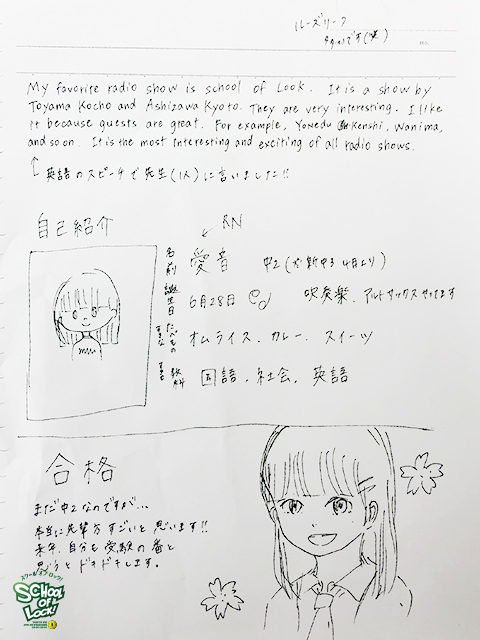 ルーズリーフ
です(笑)
My favorite radio show is school of Look. It is a show by
Toyama Kocho and Ashizawa Kyoto. They are very interesting. I like
it because guests are great. For example, Yonedu Kenshi, Wanima,
and so on. It is the most interesting and exciting of all radio shows.
英語のスピーチで先生(1人)に言いました!!
自己紹介
RN
名前 愛音 中2(が新中3 4月より)
誕生日 6月28日 吹奏楽、アルトサックスやってます
すきなたべもの オムライス、カレー、スイーツ
すきな教科 国語、社会、英語
合格
まだ中2なのですが...
本当に先輩方すごいと思います!!
来年、自分も受験の番と
思うとドキドキします。
スクール オブ ロック!
SCHOOL OF LOCK!